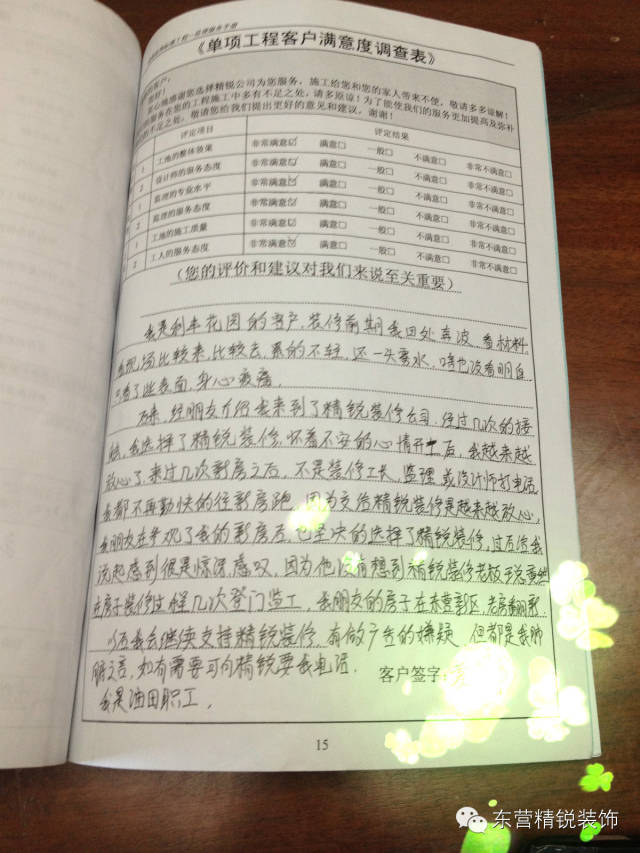 《单项工程客户满意度调查表》
客户：
您好！
心地感谢您选择精锐公司为您服务，施工给您和您的家人带来不便，敬请多多谅解！
的服务在您的工程施工中多有不足之处，请多原谅！为了能使我们的服务更加提高及弥补
的不足之处，敬请您给我们提出更好的意见和建议，谢谢！
评定项目 评定结果
1 工地的整体效果 非常满意☑ 满意□ 一般□ 不满意□ 非常不满意□
2 设计师的服务态度 非常满意☑ 满意□ 一般□ 不满意□ 非常不满意□
1 监理的专业水平 非常满意☑ 满意□ 一般□ 不满意□ 非常不满意□
2 监理的服务态度 非常满意☑ 满意□ 一般□ 不满意□ 非常不满意□
1 工地的施工质量 非常满意☑ 满意□ 一般□ 不满意□ 非常不满意□
2 工人的服务态度 非常满意☑ 满意□ 一般□ 不满意□ 非常不满意□
（您的评价和建议对我们来说至关重要）
我是利丰花园的客户，装修前期我四处奔波，看材料
看现场比较来，比较去，累的不轻，还一头雾水，啥也没看明白
只看了些表面，身心疲惫。
后来，经朋友介绍我来到了精锐装修公司，经过几次的接
触，我选择了精锐装修，怀着不安的心情开工后，我越来越
放心了，来过几次新房之后，不是装修工长，监理或设计师打电话
我都不再勤快的往新房跑，因为交给精锐装修是越来越放心，
我朋友在参观了我的新房后，也坚决的选择了精锐装修，过后给我
说起感到很是惊讶，感叹，因为他没有想到精锐装修老板于总竟然
在房子装修过程几次登门监工，我朋友的房子在东营新区，老房翻新
以后我会继续支持精锐装修，有做广告的嫌疑，但都是我肺
腑之言，如有需要可向精锐要我电话．
客户签字：
我是油田职工．
15
东营精锐装饰